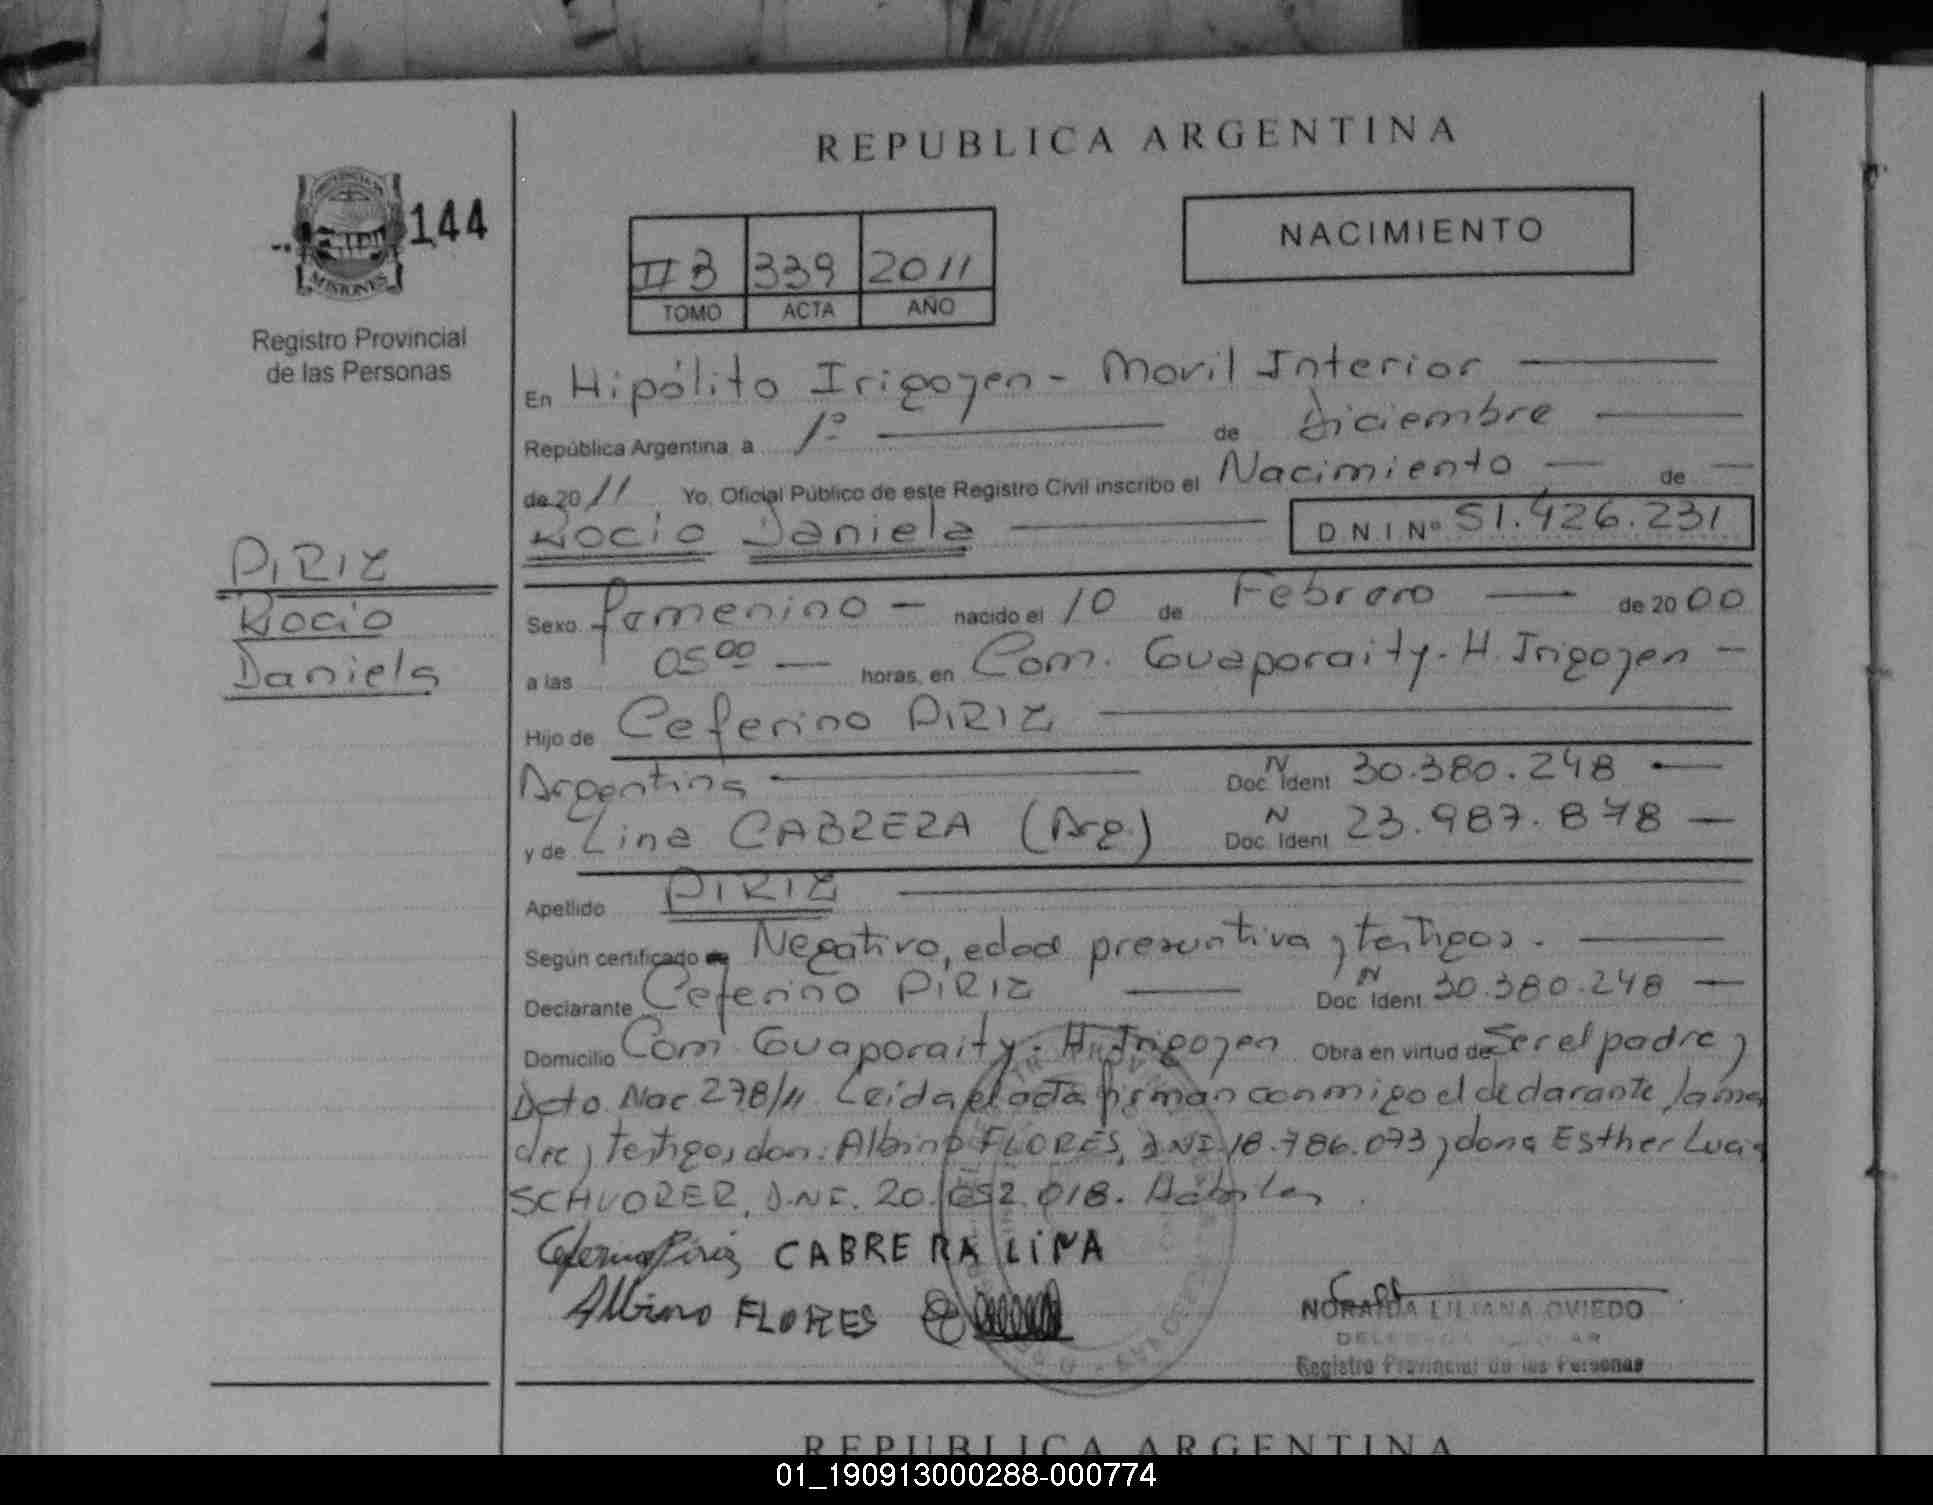 REPUBLICA ARGENTINA
144
MISIONES
Registro Provincial
de las Personas
NACIMIENTO
II B 339 2011
TOMO ACTA AÑO
En Hipólito Irigoyen - Movil Interior
República Argentina, a 1º de Diciembre
de 2011 Yo, Oficial Público de este Registro Civil inscribo el Nacimiento de
Rocio Daniela D N I Nº 51.426.231
PIRIZ
Rocio
Daniela
Sexo femenino - nacido el 10 de Febrero de 2000
a las 05 00 horas, en Com. Guaporaity. H. Irigoyen -
Hijo de Ceferino PIRIZ
Argentina Doc. N Ident 30.380.248
y de Lina CABRERA (Arg.) Doc. N Ident 23.987.878
Apellido PIRIZ
Según certificado Negativo, edad presuntiva y testigos.
Declarante Ceferino PIRIZ Doc. N Ident. 30.380.248
Domicilio Com Guaporaity. H. Irigoyen Obra en virtud de Ser el padre y
Dcto Nac 278/11 Leida el acta firman conmigo el declarante, la ma
dre y testigos don: Albino FLORES, DNI 18.786.073 y doña Esther Lucia
SCHVORER, D.N.I. 20.652.018. Hábiles
Ceferino Piriz CABRERA LINA
Albino FLORES
NORAIDA LILIANA OVIEDO
Registro Provincial de las Personas
REPUBLICA ARGENTINA
01_190913000288-000774